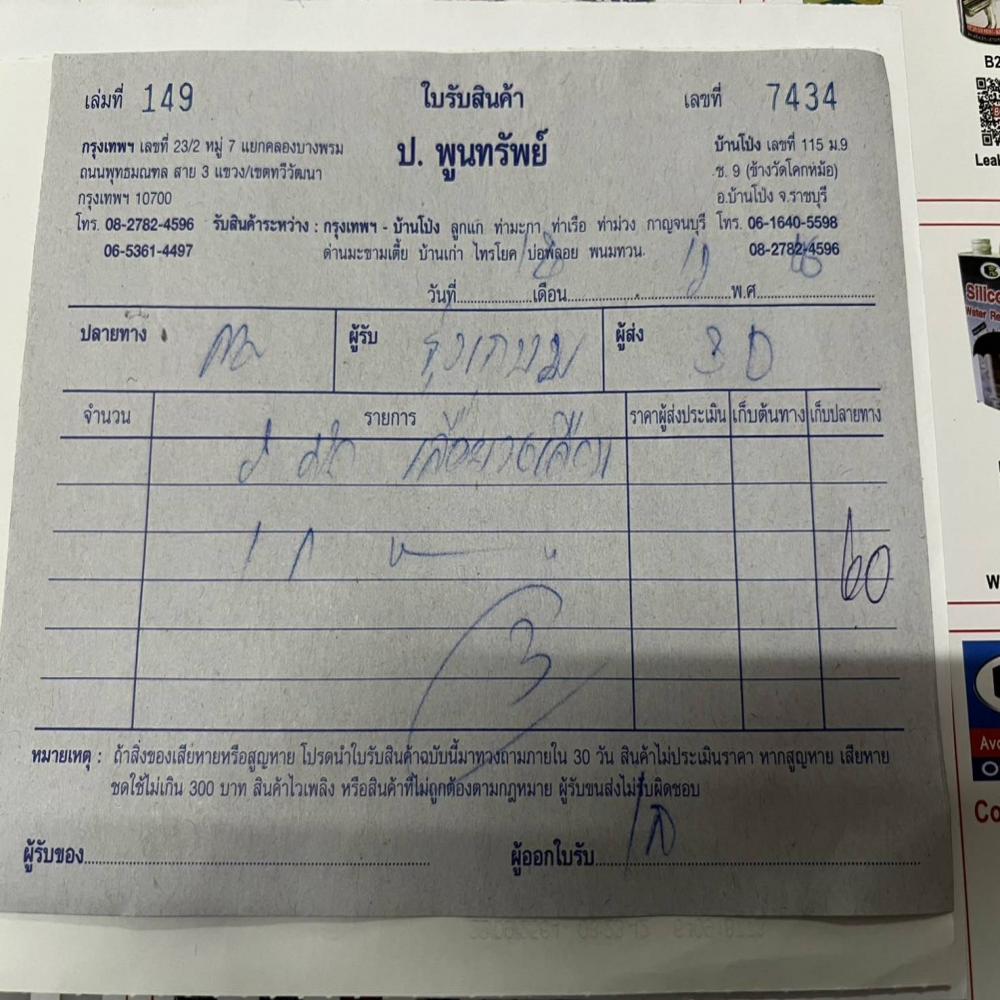 เล่มที่ 149
ใบรับสินค้า
เลขที่ 7434
ป. พูนทรัพย์
กรุงเทพฯ เลขที่ 23/2 หมู่ 7 แยกคลองบางพรม
ถนนพุทธมณฑล สาย 3 แขวง/เขตทวีวัฒนา
กรุงเทพฯ 10700
โทร. 08-2782-4596
06-5361-4497
บ้านโป่ง เลขที่ 115 ม.9
ซ. 9 (ข้างวัดโคกหม้อ)
อ.บ้านโป่ง จ.ราชบุรี
โทร. 06-1640-5598
08-2782-4596
รับสินค้าระหว่าง : กรุงเทพฯ - บ้านโป่ง ลูกแก ท่ามะกา ท่าเรือ ท่าม่วง กาญจนบุรี
ด่านมะขามเตี้ย บ้านเก่า ไทรโยค บ่อพลอย พนมทวน
วันที่ เดือน พ.ศ.
ปลายทาง ผู้รับ ผู้ส่ง 3 D
จำนวน รายการ ราคาผู้ส่งประเมิน เก็บต้นทาง เก็บปลายทาง
60
3
หมายเหตุ : ถ้าสิ่งของเสียหายหรือสูญหาย โปรดนำใบรับสินค้าฉบับนี้มาทวงถามภายใน 30 วัน สินค้าไม่ประเมินราคา หากสูญหาย เสียหาย
ชดใช้ไม่เกิน 300 บาท สินค้าไวเพลิง หรือสินค้าที่ไม่ถูกต้องตามกฎหมาย ผู้รับขนส่งไม่รับผิดชอบ
ผู้รับของ ผู้ออกใบรับ